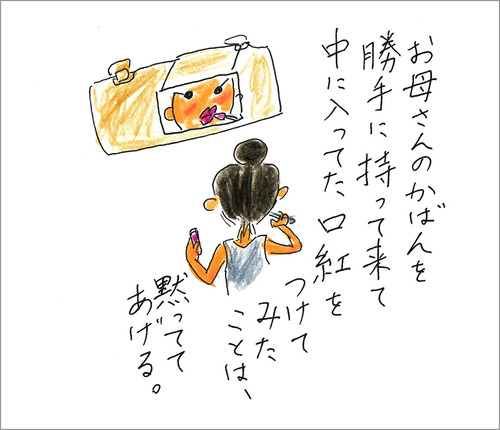 お母さんのかばんを
勝手に持って来て
中に入ってた口紅を
つけて
みた
ことは、
黙ってて
あげる。